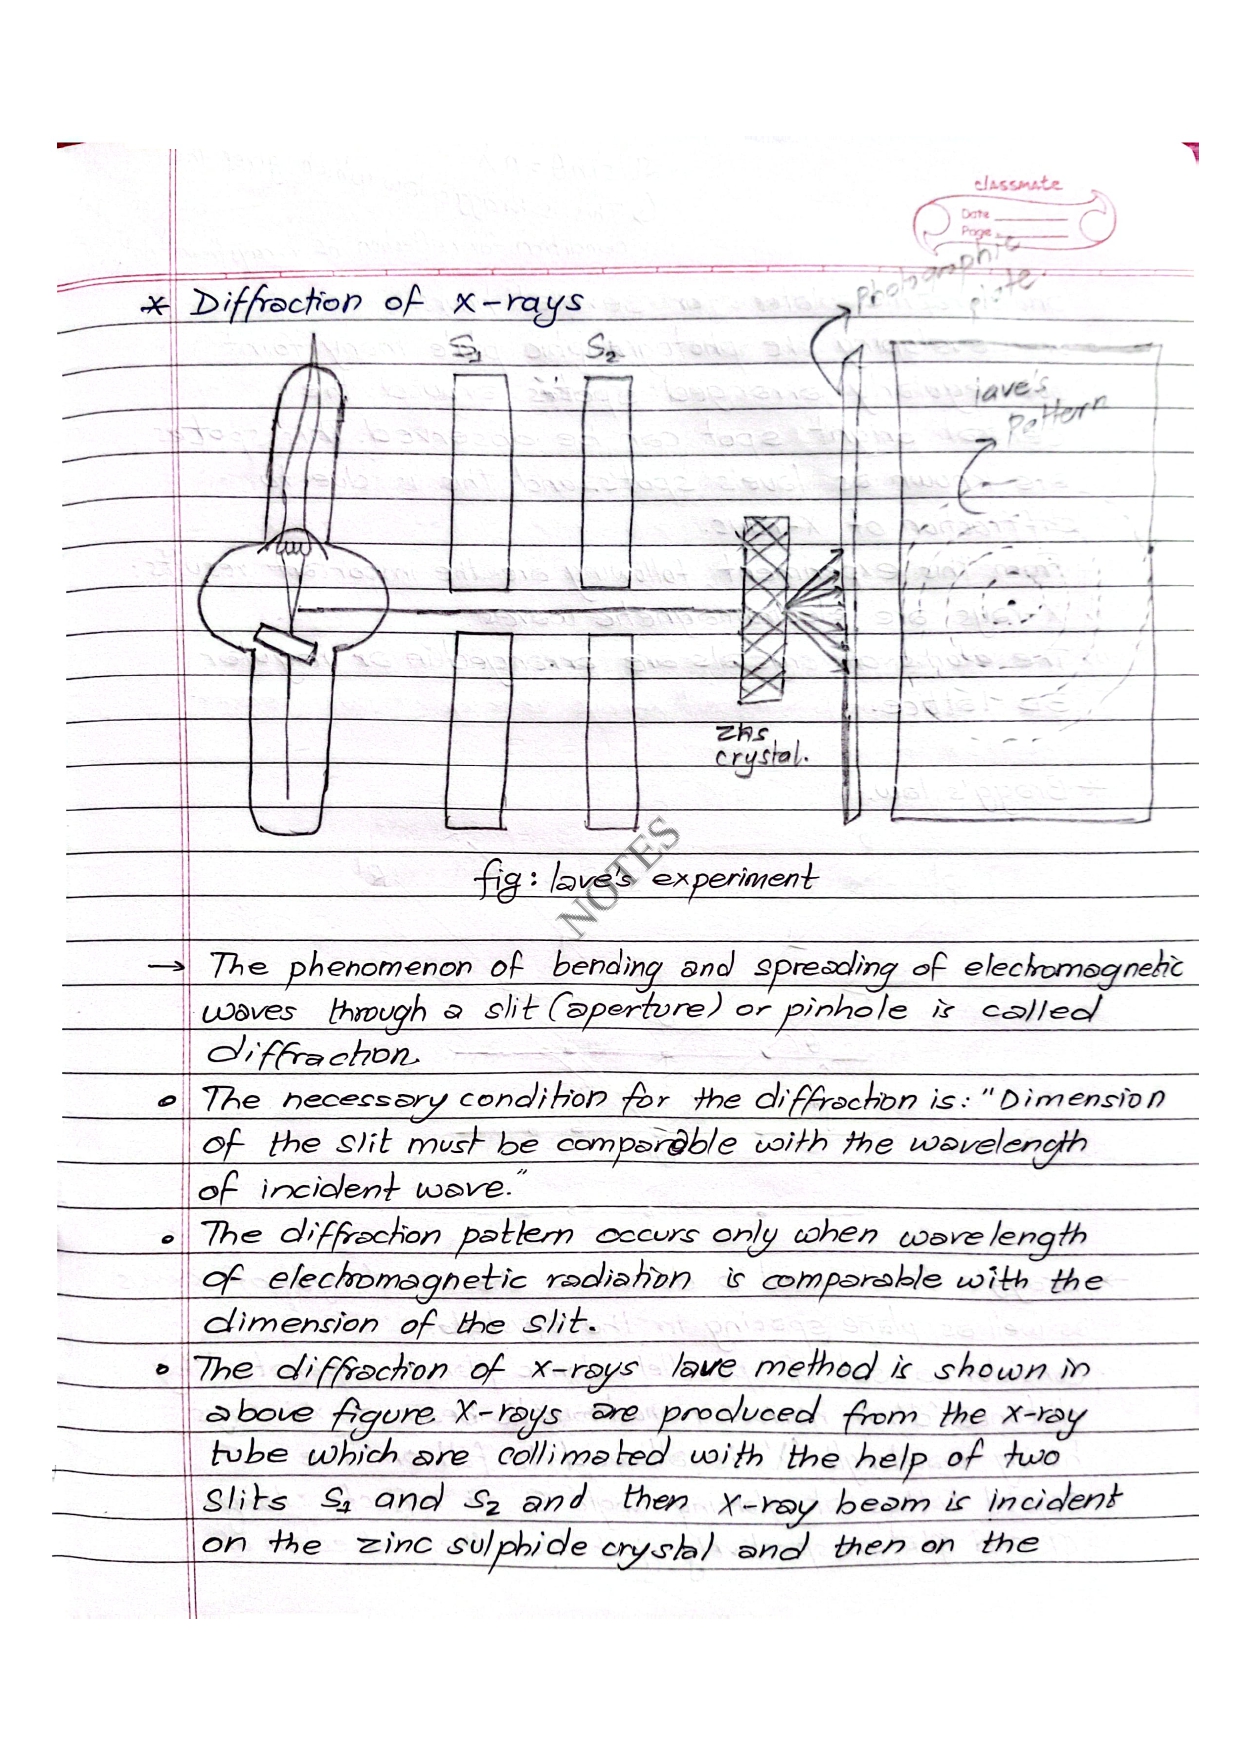 classmate
Date
Page
* Diffraction of x-rays
photographic
plate.
S1 S2
lave's
pattern
ZnS
crystal.
fig: lave's experiment
NOTES
→ The phenomenon of bending and spreading of electromagnetic
waves through a slit (aperture) or pinhole is called
diffraction.
• The necessary condition for the diffraction is: "Dimension
of the slit must be comparable with the wavelength
of incident wave."
• The diffraction pattern occurs only when wavelength
of electromagnetic radiation is comparable with the
dimension of the slit.
• The diffraction of x-rays lave method is shown in
above figure. X-rays are produced from the x-ray
tube which are collimated with the help of two
slits S1 and S2 and then x-ray beam is incident
on the zinc sulphide crystal and then on the